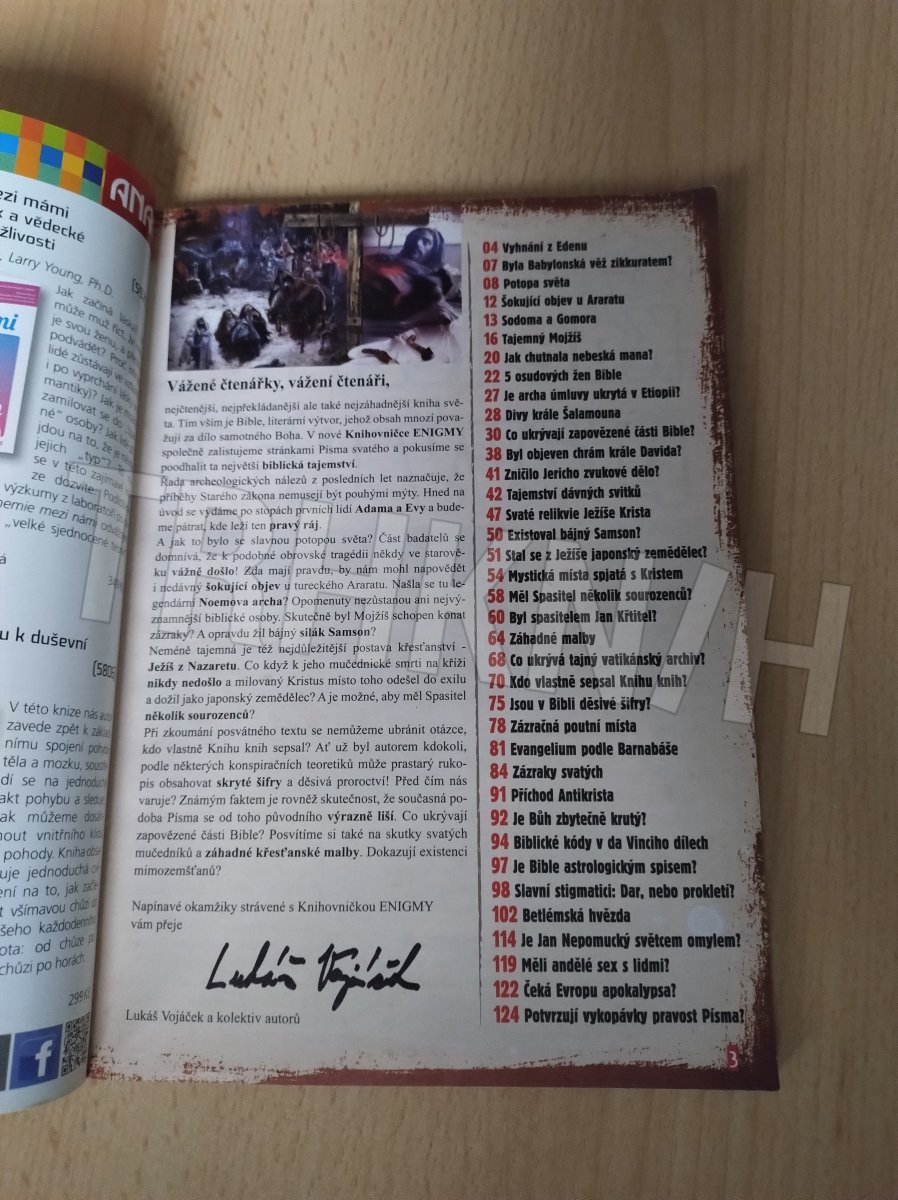 ANA
ezi mámi
k a vědecké
žlivosti
, Larry Young, Ph.D.
Jak začíná
může muž říct, že
je svou ženu, a
podvádět? Proč
lidé zůstávají ve
i po vyprchání
mantiky)? Jak je
zamilovat se do
né" osoby? Jak
jdou na to, že je
jejich „typ"? To
se v této zajímavé
ze dozvíte.
výzkumy z laboratoří
emie mezi námi
„velké sjednocené
u k duševní
(580
V této knize nás
zavede zpět k
nímu spojení
těla a mozku,
dí se na jednoduch
akt pohybu a sleduje
ak můžeme
nout vnitřního
pohody. Kniha
uje jednoduchá
ení na to, jak
t všímavou chůzi
šeho každodenního
ota: od chůze
chůzi po horách.
299 Kč
f
Vážené čtenářky, vážení čtenáři,
nejčtenější, nejpřekládanější ale také nejzáhadnější kniha svě-
ta. Tím vším je Bible, literární výtvor, jehož obsah mnozí pova-
žují za dílo samotného Boha. V nové Knihovničce ENIGMY
společně zalistujeme stránkami Písma svatého a pokusíme se
poodhalit ta největší biblická tajemství.
Řada archeologických nálezů z posledních let naznačuje, že
příběhy Starého zákona nemusejí být pouhými mýty. Hned na
úvod se vydáme po stopách prvních lidí Adama a Evy a bude-
me pátrat, kde leží ten pravý ráj.
A jak to bylo se slavnou potopou světa? Část badatelů se
domnívá, že k podobné obrovské tragédii někdy ve starově-
ku vážně došlo! Zda mají pravdu, by nám mohl napovědět
i nedávný šokující objev u tureckého Araratu. Našla se tu le-
gendární Noemova archa? Opomenuty nezůstanou ani nejvý-
znamnější biblické osoby. Skutečně byl Mojžíš schopen konat
zázraky? A opravdu žil bájný silák Samson?
Neméně tajemná je též nejdůležitější postava křesťanství -
Ježíš z Nazaretu. Co když k jeho mučednické smrti na kříži
nikdy nedošlo a milovaný Kristus místo toho odešel do exilu
a dožil jako japonský zemědělec? A je možné, aby měl Spasitel
několik sourozenců?
Při zkoumání posvátného textu se nemůžeme ubránit otázce,
kdo vlastně Knihu knih sepsal? Ať už byl autorem kdokoli,
podle některých konspiračních teoretiků může prastarý ruko-
pis obsahovat skryté šifry a děsivá proroctví! Před čím nás
varuje? Známým faktem je rovněž skutečnost, že současná po-
doba Písma se od toho původního výrazně liší. Co ukrývají
zapovězené části Bible? Posvítíme si také na skutky svatých
mučedníků a záhadné křesťanské malby. Dokazují existenci
mimozemšťanů?
Napínavé okamžiky strávené s Knihovničkou ENIGMY
vám přeje
Lukáš Vojáček
Lukáš Vojáček a kolektiv autorů
04 Vyhnání z Edenu
07 Byla Babylonská věž zikkuratem?
08 Potopa světa
12 Šokující objev u Araratu
13 Sodoma a Gomora
16 Tajemný Mojžíš
20 Jak chutnala nebeská mana?
22 5 osudových žen Bible
27 Je archa úmluvy ukrytá v Etiopii?
28 Divy krále Šalamouna
30 Co ukrývají zapovězené části Bible?
38 Byl objeven chrám krále Davida?
41 Zničilo Jericho zvukové dělo?
42 Tajemství dávných svitků
47 Svaté relikvie Ježíše Krista
50 Existoval bájný Samson?
51 Stal se z Ježíše japonský zemědělec?
54 Mystická místa spjatá s Kristem
58 Měl Spasitel několik sourozenců?
60 Byl spasitelem Jan Křtitel?
64 Záhadné malby
68 Co ukrývá tajný vatikánský archiv?
70 Kdo vlastně sepsal Knihu knih?
75 Jsou v Bibli děsivé šifry?
78 Zázračná poutní místa
81 Evangelium podle Barnabáše
84 Zázraky svatých
91 Příchod Antikrista
92 Je Bůh zbytečně krutý?
94 Biblické kódy v da Vinciho dílech
97 Je Bible astrologickým spisem?
98 Slavní stigmatici: Dar, nebo prokletí?
102 Betlémská hvězda
114 Je Jan Nepomucký světcem omylem?
119 Měli andělé sex s lidmi?
122 Čeká Evropu apokalypsa?
124 Potvrzují vykopávky pravost Písma?
3